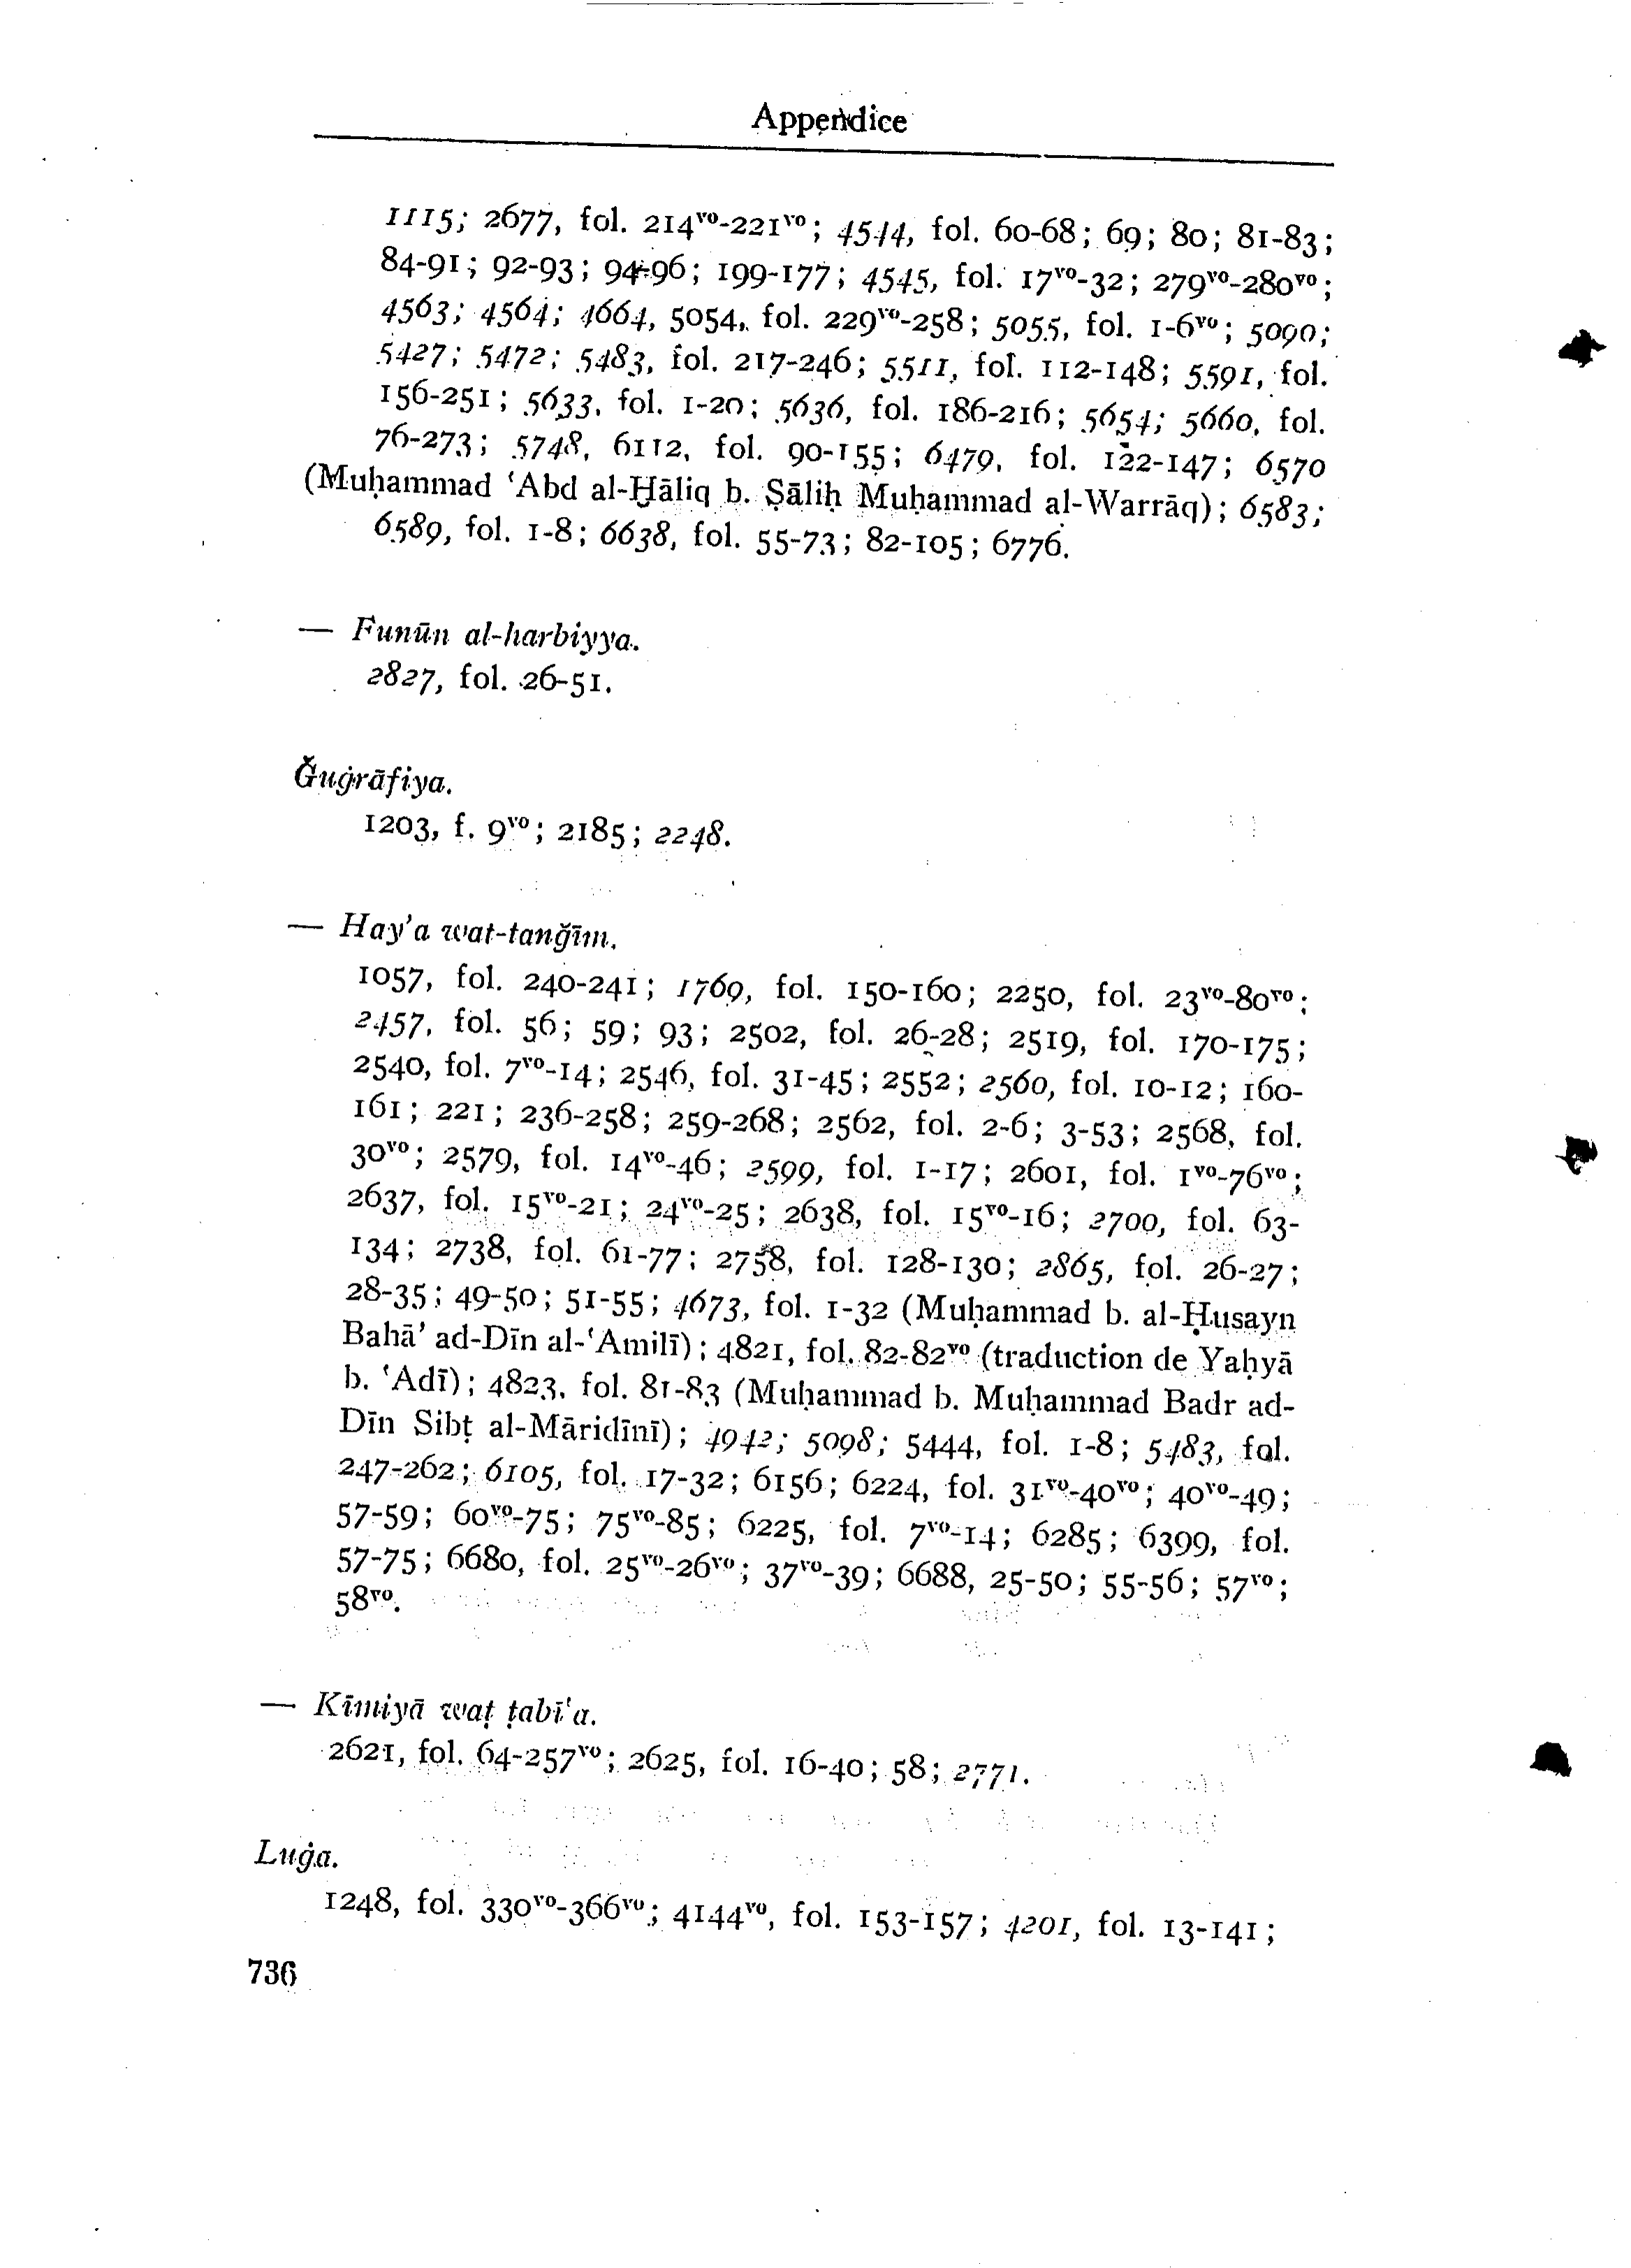 Appendice
1115; 2677, fol. 214vo-221vo; 4544, fol. 60-68; 69; 80; 81-83;
84-91; 92-93; 94-96; 199-177; 4545, fol. 17vo-32; 279vo-280vo;
4563; 4564; 4664, 5054, fol. 229vo-258; 5055, fol. 1-6vo; 5090;
5427; 5472; 5483, fol. 217-246; 5511, fol. 112-148; 5591, fol.
156-251; 5633, fol. 1-20; 5636, fol. 186-216; 5654; 5660, fol.
76-273; 5748, 6112, fol. 90-155; 6479, fol. 122-147; 6570
(Muḥammad ‘Abd al-Ḫāliq b. Ṣāliḥ Muḥammad al-Warrāq); 6583;
6589, fol. 1-8; 6638, fol. 55-73; 82-105; 6776.
— Funūn al-harbiyya.
2827, fol. 26-51.
Ǧuġrāfiya.
1203, f. 9vo; 2185; 2248.
— Hay’a wat-tanǧīm.
1057, fol. 240-241; 1769, fol. 150-160; 2250, fol. 23vo-80vo;
2457, fol. 56; 59; 93; 2502, fol. 26-28; 2519, fol. 170-175;
2540, fol. 7vo-14; 2546, fol. 31-45; 2552; 2560, fol. 10-12; 160-
161; 221; 236-258; 259-268; 2562, fol. 2-6; 3-53; 2568, fol.
30vo; 2579, fol. 14vo-46; 2599, fol. 1-17; 2601, fol. 1vo-76vo;
2637, fol. 15vo-21; 24vo-25; 2638, fol. 15vo-16; 2700, fol. 63-
134; 2738, fol. 61-77; 2758, fol. 128-130; 2865, fol. 26-27;
28-35; 49-50; 51-55; 4673, fol. 1-32 (Muḥammad b. al-Ḥusayn
Bahā’ ad-Dīn al-‘Amilī); 4821, fol. 82-82vo (traduction de Yaḥyā
b. ‘Adī); 4823, fol. 81-83 (Muḥammad b. Muḥammad Badr ad-
Dīn Sibṭ al-Māridīnī); 4942; 5098; 5444, fol. 1-8; 5483, fol.
247-262; 6105, fol. 17-32; 6156; 6224, fol. 31vo-40vo; 40vo-49;
57-59; 60vo-75; 75vo-85; 6225, fol. 7vo-14; 6285; 6399, fol.
57-75; 6680, fol. 25vo-26vo; 37vo-39; 6688, 25-50; 55-56; 57vo;
58vo.
— Kīmiyā waṭ ṭabī‘a.
2621, fol. 64-257vo; 2625, fol. 16-40; 58; 2771.
Luġa.
1248, fol. 330vo-366vo; 4144vo, fol. 153-157; 4201, fol. 13-141;
736